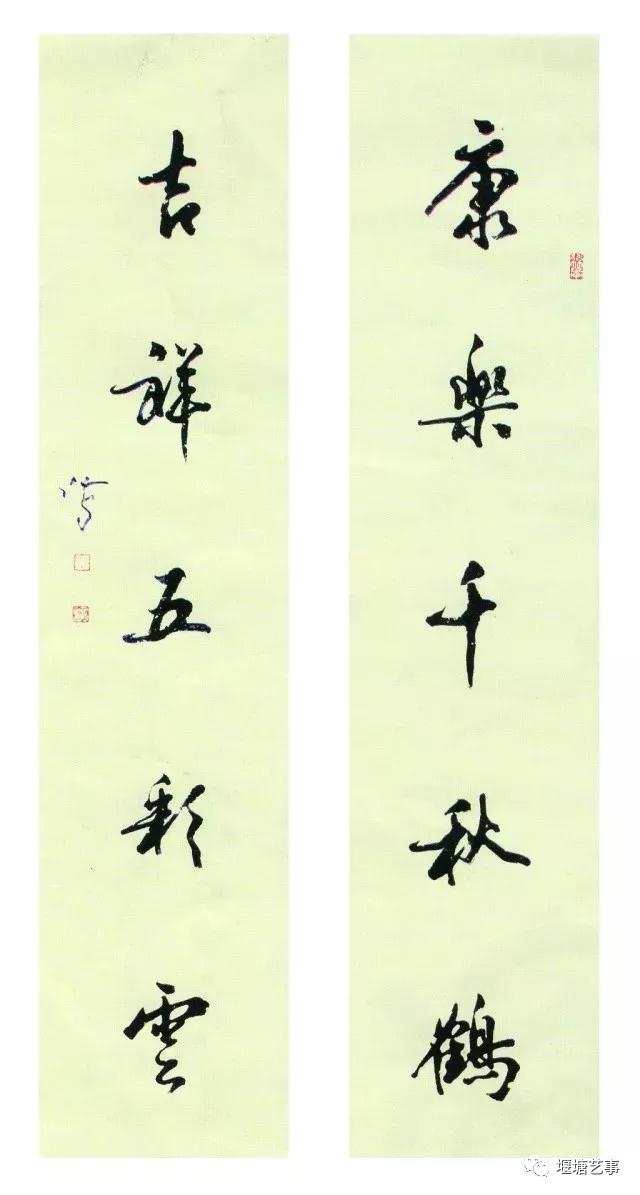 康樂千秋鶴
吉祥五彩雲
堰塘艺事